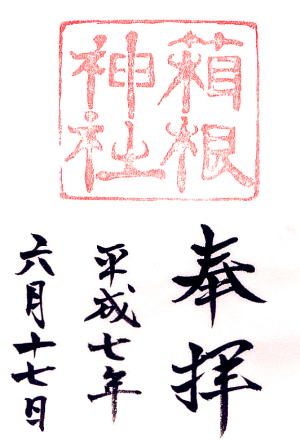 箱根
神社
奉拝
平成七年
六月十七日